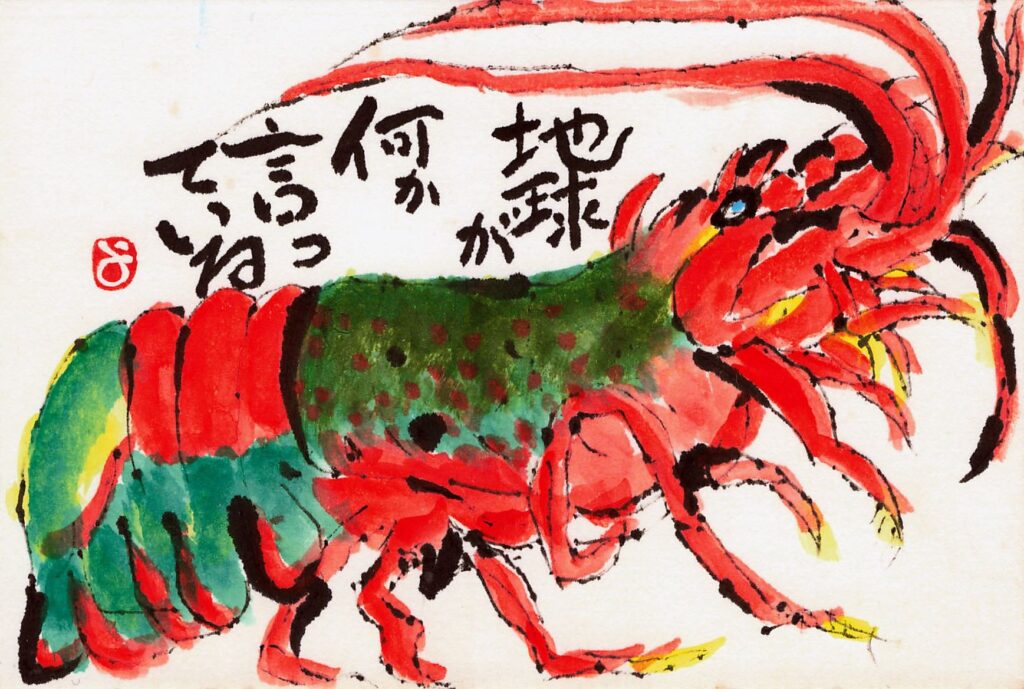 地球が
何か
言っ
ていね